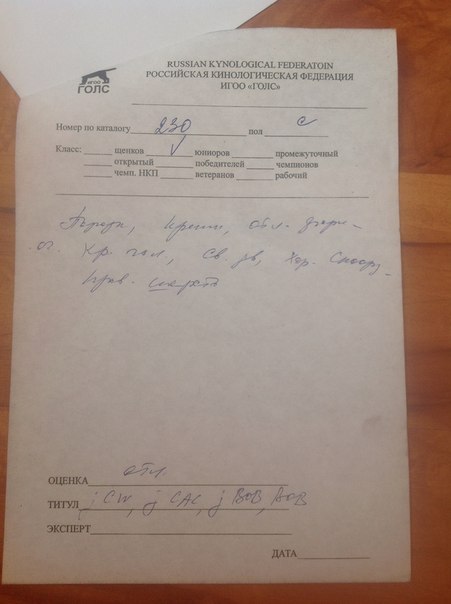 ИГОО
ГОЛС
RUSSIAN KYNOLOGICAL FEDERATOIN
РОССИЙСКАЯ КИНОЛОГИЧЕСКАЯ ФЕДЕРАЦИЯ
ИГОО «ГОЛС»
Номер по каталогу 230 пол с
Класс: щенков V юниоров промежуточный
открытый победителей чемпионов
чемп. НКП ветеранов рабочий
Породн, крепк,
Хр. св. дв, Хор.
прав.
ОЦЕНКА отл
ТИТУЛ j CW, j CAC, j BOB, BOB
ЭКСПЕРТ
ДАТА